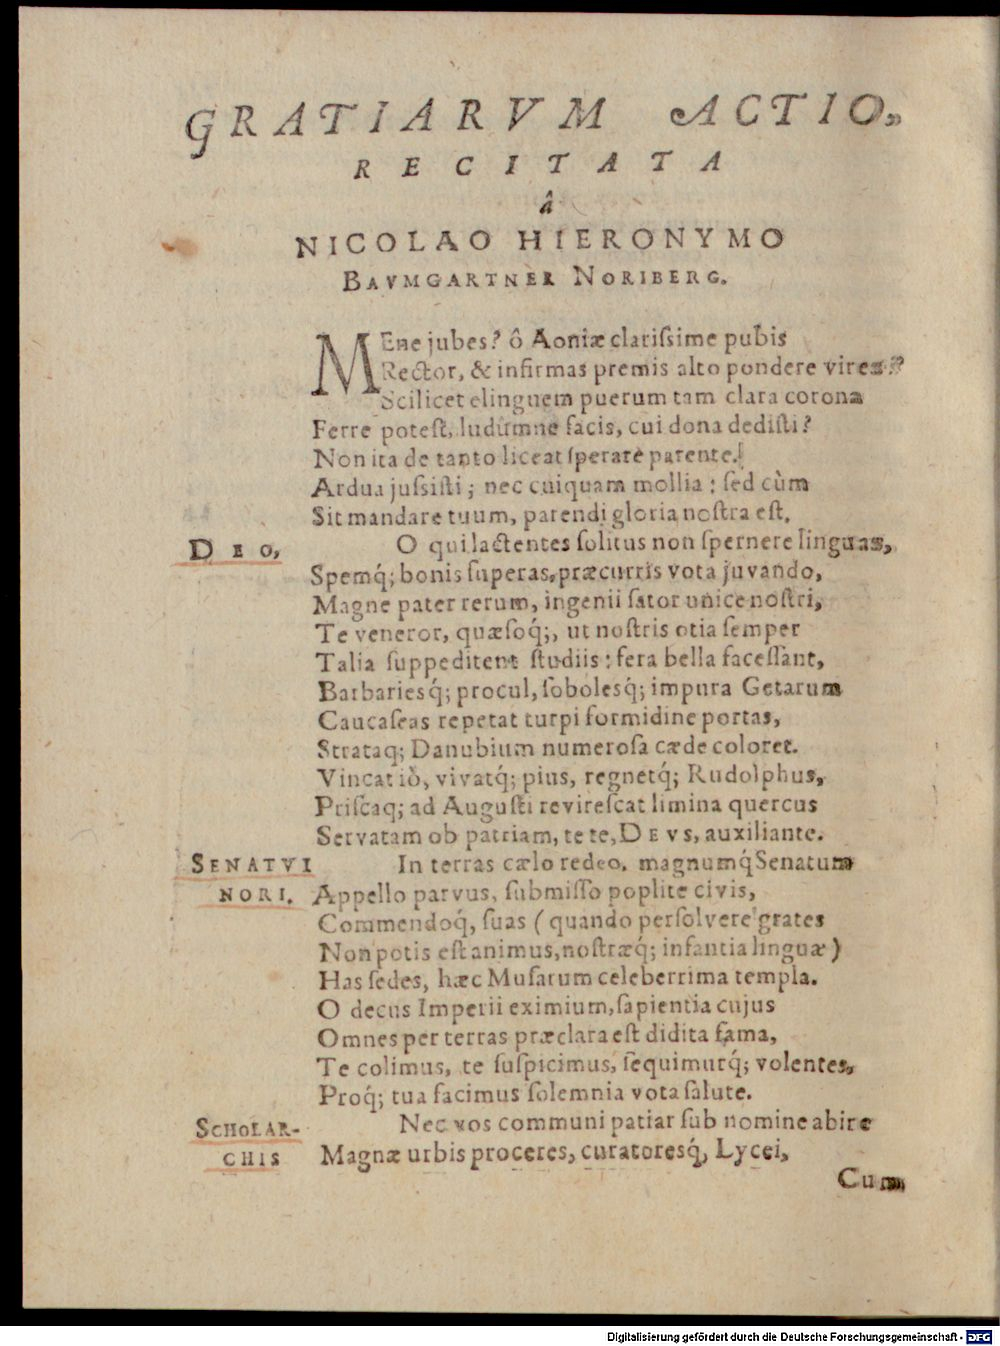 GRATIARVM ACTIO,
RECITATA
â
NICOLAO HIERONYMO
BAVMGARTNER NORIBERG.
MEne jubes? ô Aoniæ clarissime pubis
Rector, & infirmas premis alto pondere vires?
Scilicet elinguem puerum tam clara corona
Ferre potest, ludumne facis, cui dona dedisti?
Non ita de tanto liceat sperare parente.
Ardua jussisti; nec cuiquam mollia: sed cùm
Sit mandare tuum, parendi gloria nostra est.
DEO, O qui lactentes solitus non spernere linguas,
Spemq́; bonis superas, præcurris vota juvando,
Magne pater rerum, ingenii sator unice nostri,
Te veneror, quæsoq́;, ut nostris otia semper
Talia suppeditent studiis: fera bella facessant,
Barbariesq́; procul, sobolesq́; impura Getarum
Caucaseas repetat turpi formidine portas,
Strataq; Danubium numerosa cæde coloret.
Vincat iô, vivatq́; pius, regnetq́; Rudolphus,
Priscaq; ad Augusti revirescat limina quercus
Servatam ob patriam, te te, DEVS, auxiliante.
SENATVI In terras cælo redeo. magnumq́ Senatum
NORI. Appello parvus, submisso poplite civis,
Commendoq́, suas (quando persolvere grates
Non potis est animus, nostræq́; infantia linguæ)
Has sedes, hæc Musarum celeberrima templa.
O decus Imperii eximium, sapientia cujus
Omnes per terras præclara est didita fama,
Te colimus, te suspicimus, sequimurq́; volentes,
Proq́; tua facimus solemnia vota salute.
SCHOLAR- Nec vos communi patiar sub nomine abire
CHIS Magnæ urbis proceres, curatoresq́, Lycei,
Cum
Digitalisierung gefördert durch die Deutsche Forschungsgemeinschaft - DFG